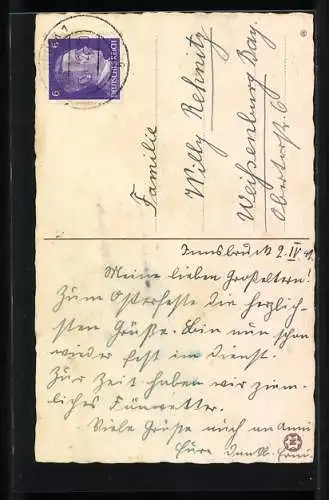 DEUTSCHES REICH
6 6
Familie
Willy Rehnitz
Weißenburg Bay.
Obertorstr. 6
Innsbruck 2. IV. 42.
Meine lieben Großeltern!
Zum Osterfeste die herzlich-
sten Grüße. Bin nun schon
wieder fest im Dienst.
Zur Zeit haben wir ziem-
liches
Viele Grüße auch an Anni
Eure